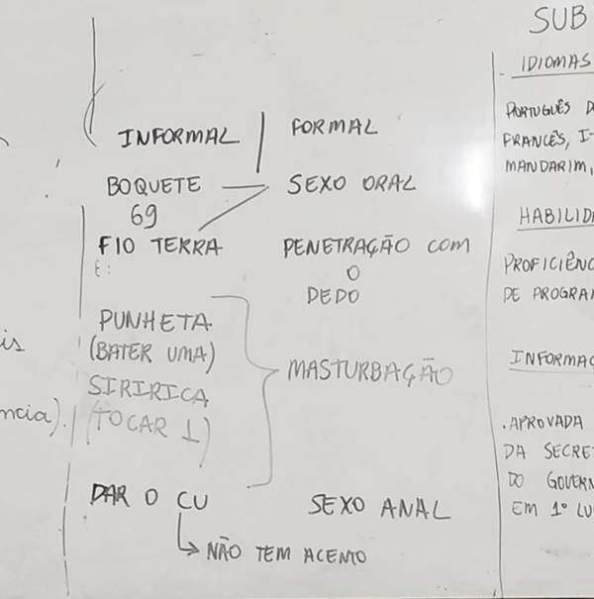 INFORMAL | FORMAL
BOQUETE — SEXO ORAL
69
FIO TERRA PENETRAÇÃO COM
E: O
DEDO
PUNHETA
(BATER UMA)
MASTURBAÇÃO
SIRIRICA
(TOCAR 1)
DAR O CU SEXO ANAL
NÃO TEM ACENTO
is
ncia).
SUB
IDIOMAS
PORTUGUÊS D
FRANCÊS, I
MANDARIM,
HABILIDA
PROFICIÊNC
DE PROGRA
INFORMAÇ
.APROVADA
DA SECRET
DO GOVERN
EM 1º LU